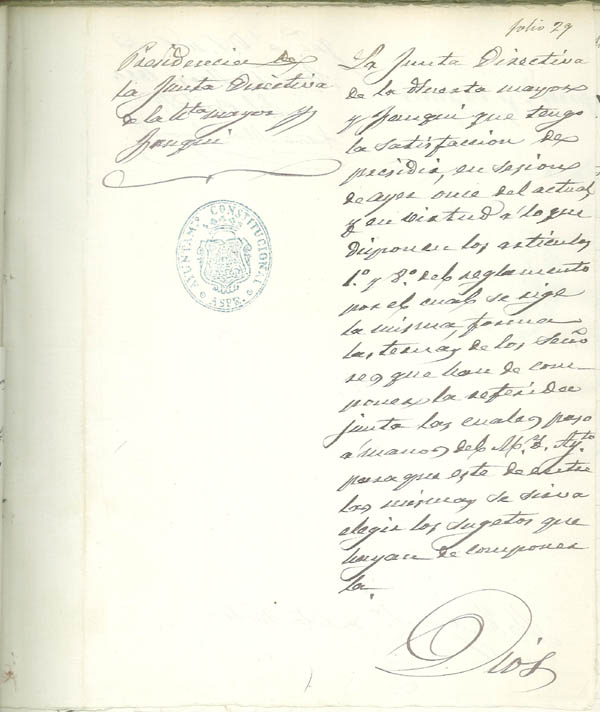 folio 29
Presidencia de
la Junta Directiva
de la Hta mayor y
Fauquí
AYUNTAM.TO CONSTITUCIONAL
ASPE.
La Junta Directiva
de la Huerta mayor
y Fauquí que tengo
la satisfaccion de
presidir, en sesion
de ayer once del actual,
y en virtud á lo que
disponen los articulos
1.º y 8.º del reglamento
por el cual se rige
la misma, forma
las ternas de los Seño
res que han de com-
poner la referida
junta las cuales paso
á manos del M. I. Ay.to
para que este de entre
las mismas se sirva
elegir los sugetos que
hayan de componer
la.
Dios